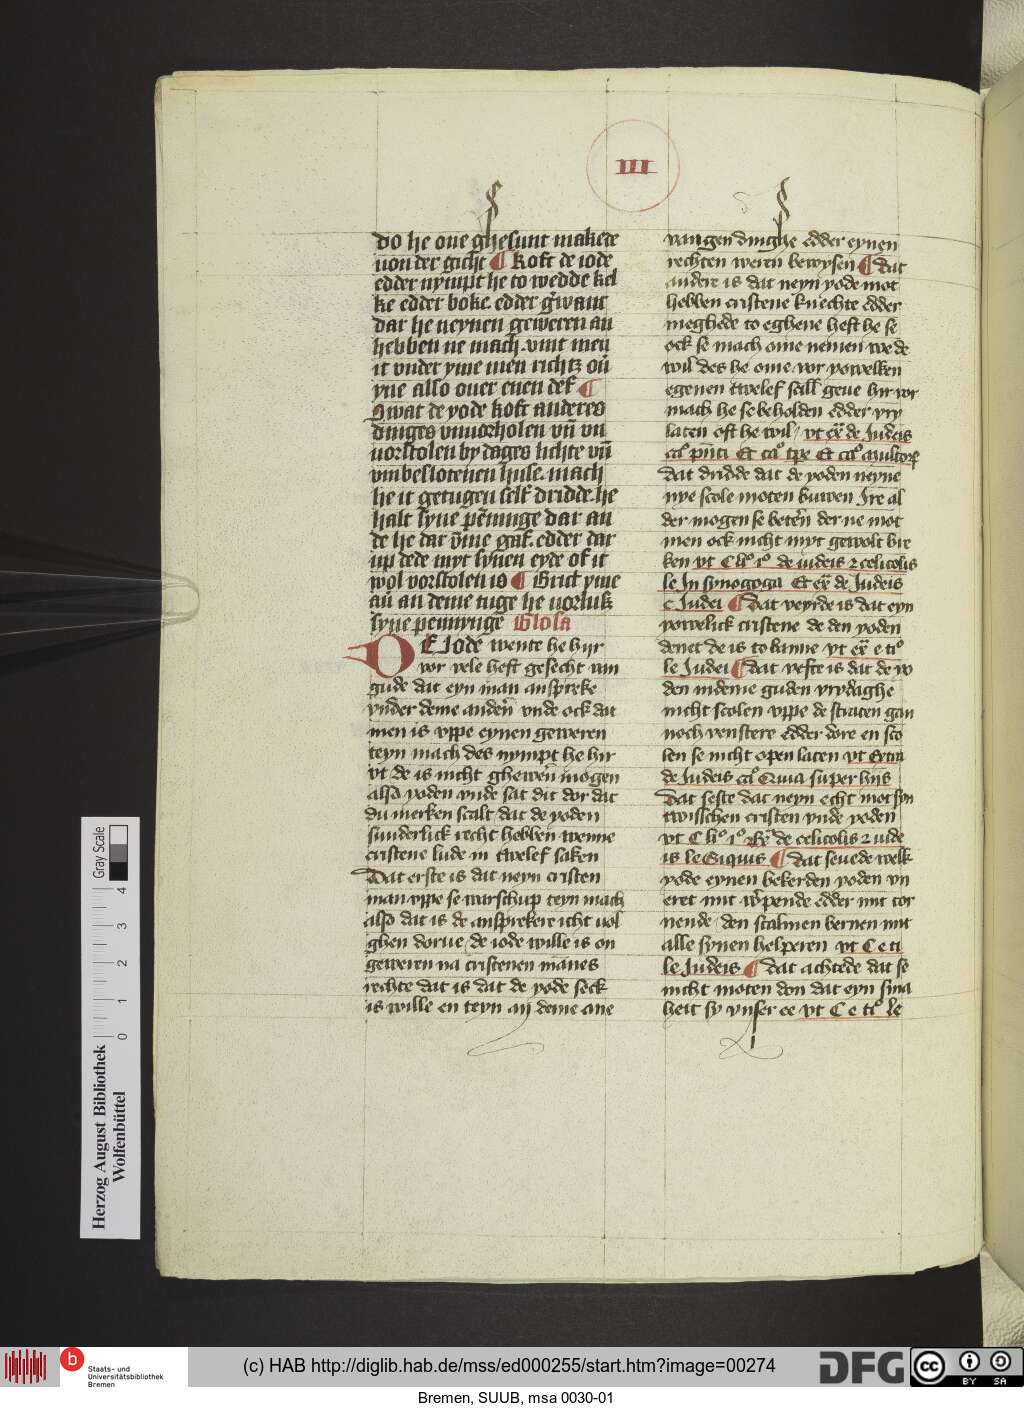 III
do he one ghesunt makede
von der gicht ¶ Koft de iode
edder nympt he to wedde kel
ke edder boke. edder gewant
dar he neynen geweren an
hebben ne mach. vint men
it vnder yme men richtz ou̅
yne also ouer enen def ¶
Swat de yode koft anderes
dinges vnuorholen vn̄ vn
uorstolen by dages lichte vn̄
vnbeslotenen huse. mach
he it getugen self dridde. he
halt syne pe̅ninge dar an
de he dar v̅me gaf. edder dar
up dede myt synen eyde of it
wol vorstolen is ¶ Brict yme
au̅ an deme tuge he uorlusz
syne pennynge Glosa
DE Jode wente he hyr
vor vele heft gesecht van
gude dat eyn man anspreke
vnder deme anden̅ vnde ock dat
men is vppe eynen geweren
teyn mach des nympt he hir
vt de is nicht ghewen̅ mogen
also yoden vnde sat dit dor dat
du merken scalt dat de yoden
sunderlick recht hebben wenne
cristene lude in twelef saken
Dat erste is dat neyn cristen
man vppe se warschup teyn mach
also dat is de ansprekere icht uol
ghen dorue de iode wille is on
geweren na cristenen manes
rechte dat is dat de yode seck
is wille en teyn an deme ane
vangen dinghe edder eynen
rechten weren bewysen ¶ dat
andere is dat neyn yode mot
hebben cristene knechte edder
meghede to eghene heft he se
ock se mach ome nemen we de
wil des he ome vor yowelken
egenen twelef scill geue hir vor
mach he se beholden edder vry
laten oft he wil / vt ex̅ de Judeis
ca° pn̅ti Et ca° tpe Et ca° multorꝝ
Dat dridde dat de yoden neyne
nye scole moten buwen Jre al
der mogen se beter̅n der ne mot
men ock nicht myt gewolt bre
ken vt C li° i° de iudeis ⁊ celicolis
le Jn synogoga Et ex̅ de Judeis
c Judei ¶ Dat veyrde is dat eyn
yowelick cristene de den yoden
denet de is to banne vt ex̅ e ti°
le Judei ¶ dat vefte is dat de yo
den indeme guden vrydaghe
nicht scolen vppe de straten gan
noch venstere edder dore en sco
len se nicht open laten vt Extra
de Judeis ca° Quia super hys
Dat seste dat neyn echt mot syn
twisschen cristen vnde yoden
vt C li° i° Rx̅ de celicolis ⁊ iude
is le Siquis ¶ dat seuede welk
yode eynen bekerden yoden vn
eret mit w̅pende edder mit tor
nende / den scalmen bernen mit
alle synen helperen vt C e ti
le Judeis ¶ dat achtede dat se
nicht moten don dat eyn sma
heit sy vnser ee vt C e ti° le
Gray Scale
4 3 2 1 0
Herzog August Bibliothek
Wolfenbüttel
b
Staats- und
Universitätsbibliothek
Bremen
(c) HAB http://diglib.hab.de/mss/ed000255/start.htm?image=00274
DFG
cc BY SA
Bremen, SUUB, msa 0030-01